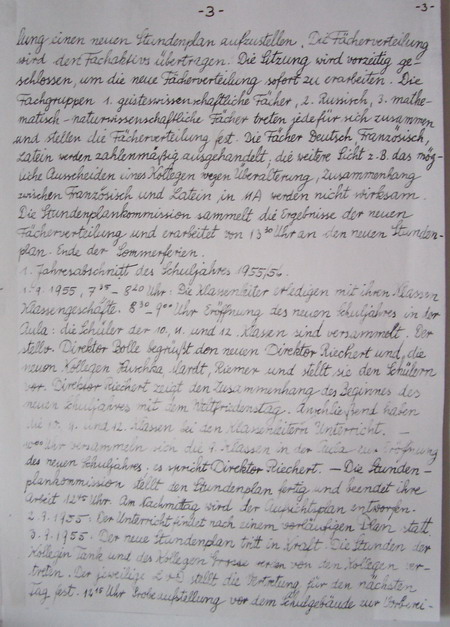 -3-
-3-
lung einen neuen Stundenplan aufzustellen. Die Fächerverteilung
wird den Fachaktivs übertragen. Die Sitzung wird vorzeitig ge-
schlossen, um die neue Fächerverteilung sofort zu erarbeiten. Die
Fachgruppen 1. geisteswissenschaftliche Fächer, 2. Russisch, 3. mathe-
matisch-naturwissenschaftliche Fächer treten jede für sich zusammen
und stellen die Fächerverteilung fest. Die Fächer Deutsch Französisch,
Latein werden zahlenmäßig ausgehandelt, die weitere Sicht z.B. das mög-
liche Ausscheiden eines Kollegen wegen Überalterung, Zusammenhang
zwischen Französisch und Latein in 11A werden nicht wirksam.
Die Stundenplankommission sammelt die Ergebnisse der neuen
Fächerverteilung und erarbeitet von 13³⁰ Uhr an den neuen Stunden-
plan. Ende der Sommerferien.
1. Jahresabschnitt des Schuljahres 1955/56.
1.9.1955, 7⁴⁵-8²⁰ Uhr: Die Klassenleiter erledigen mit ihren Klassen
Klassengeschäfte. 8³⁰-9⁰⁰ Uhr Eröffnung des neuen Schuljahres in der
Aula: die Schüler der 10., 11. und 12. Klassen sind versammelt. Der
stellv. Direktor Bolle begrüßt den neuen Direktor Riechert und die
neuen Kollegen Juschka, Mardt, Riemer und stellt sie den Schülern
vor. Direktor Riechert zeigt den Zusammenhang des Beginnes des
neuen Schuljahres mit dem Weltfriedenstag. Anschließend haben
die 10., 11. und 12. Klassen bei den Klassenleitern Unterricht. -
Uhr versammeln sich die 9. Klassen in der Aula zur Eröffnung
des neuen Schuljahres. es spricht Direktor Riechert. - Die Stunden-
plankommission stellt den Stundenplan fertig und beendet ihre
Arbeit 12⁴⁵ Uhr. Am Nachmittag wird der Aufsichtsplan entworfen.
2.9.1955: Der Unterricht findet nach einem vorläufigen Plan statt.
3.9.1955. Der neue Stundenplan tritt in Kraft. Die Stunden der
Kollegen Tank und des Kollegen Grosse werden von den Kollegen ver-
treten. Der jeweilige L v D stellt die Vertretung für den nächsten
Tag fest. 14¹⁵ Uhr Probeaufstellung vor dem Schulgebäude zur Vorberei-